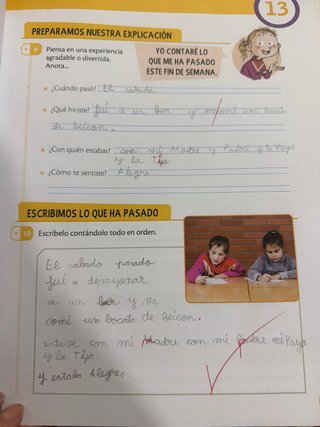 13
PREPARAMOS NUESTRA EXPLICACIÓN
9 Piensa en una experiencia
agradable o divertida.
Anota...
YO CONTARÉ LO
QUE ME HA PASADO
ESTE FIN DE SEMANA.
¿Cuándo pasó? El sabado
¿Qué hiciste? fuí a un bar y me comí un bocat
de beicon.
¿Con quién estabas? con mi Madre y Padre y la Yaya
y la Tía
¿Cómo te sentiste? Alegre
ESCRIBIMOS LO QUE HA PASADO
10 Escríbelo contándolo todo en orden.
El sabado pasado
fuí a desayunar
a un bar y me
comí un bocata de beicon.
estuve con mi Madre con mi padre mi Yaya
y la Tía
y estaba Alegre